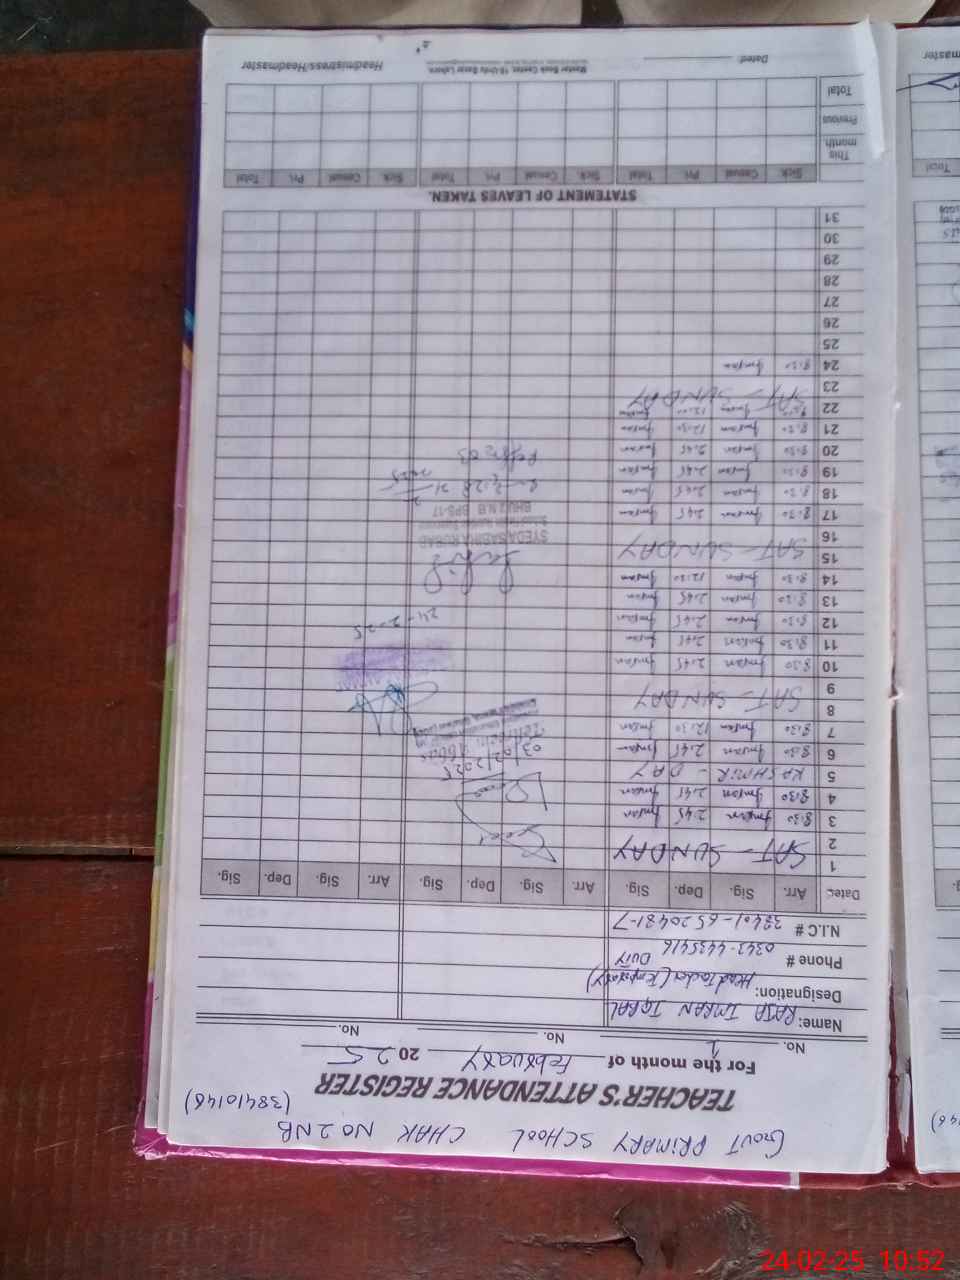 GOVT PRIMARY SCHOOL CHAK NO 2 NB (38410146)
TEACHER'S ATTENDANCE REGISTER
For the month of February 2025
No. 1 No. No.
Name: RAJA IMRAN IQBAL
Designation: Head Teacher
Phone # 0343-4435416 Duty
N.I.C # 38401-6520481-7
Date: Arr. Sig. Dep. Sig. Arr. Sig. Dep. Sig. Arr. Sig. Dep. Sig.
1
2 SAT - SUNDAY
3 8:30 Imran 2:45 Imran
4 8:30 Imran 2:45 Imran
5 KASHMIR - DAY
6 8:30 Imran 2:45 Imran
7 8:30 Imran 12:30 Imran
8
9 SAT - SUNDAY
10 8:30 Imran 2:45 Imran
11 8:30 Imran 2:45 Imran
12 8:30 Imran 2:45 Imran
13 8:30 Imran 2:45 Imran
14 8:30 Imran 12:30 Imran
15 SAT - SUNDAY
16
17 8:30 Imran 2:45 Imran
18 8:30 Imran 2:45 Imran
19 8:30 Imran 2:45 Imran
20 8:30 Imran 2:45 Imran
21 8:30 Imran 12:30 Imran
22 SAT - SUNDAY
23
24 8:30 Imran
25
26
27
28
29
30
31
03/02/2025
24-2-25
SYEDA SABIKA RUBAB
BHU 2 N.B BPS-17
STATEMENT OF LEAVES TAKEN.
Sick Casual Pri. Total Sick Casual Pri. Total Sick Casual Pri. Total
This month.
Previous
Total
Dated
Master Book Center, 16-Urdu Bazar Lahore.
Headmistress/Headmaster
24-02-25 10:52